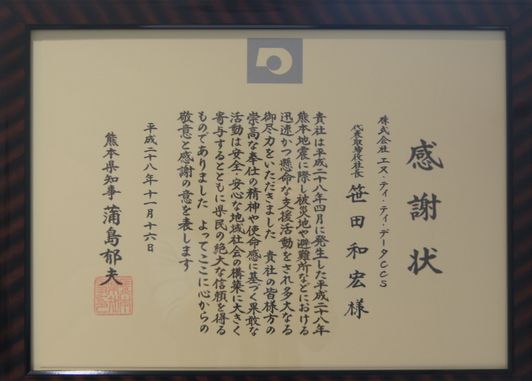 感謝状
株式会社 エヌ・ティ・ティ・データCCS
代表取締役社長 笹田和宏 様
貴社は平成二十八年四月に発生した平成二十八年
熊本地震に際し被災地や避難所などにおける
迅速かつ懸命な支援活動をされ多大なる
御尽力をいただきました 貴社の皆様方の
崇高な奉仕の精神や使命感に基づく果敢な
活動は安全・安心な地域社会の構築に大きく
寄与するとともに県民の絶大な信頼を得る
ものでありました よってここに心からの
敬意と感謝の意を表します
平成二十八年十一月十六日
熊本県知事 蒲島郁夫